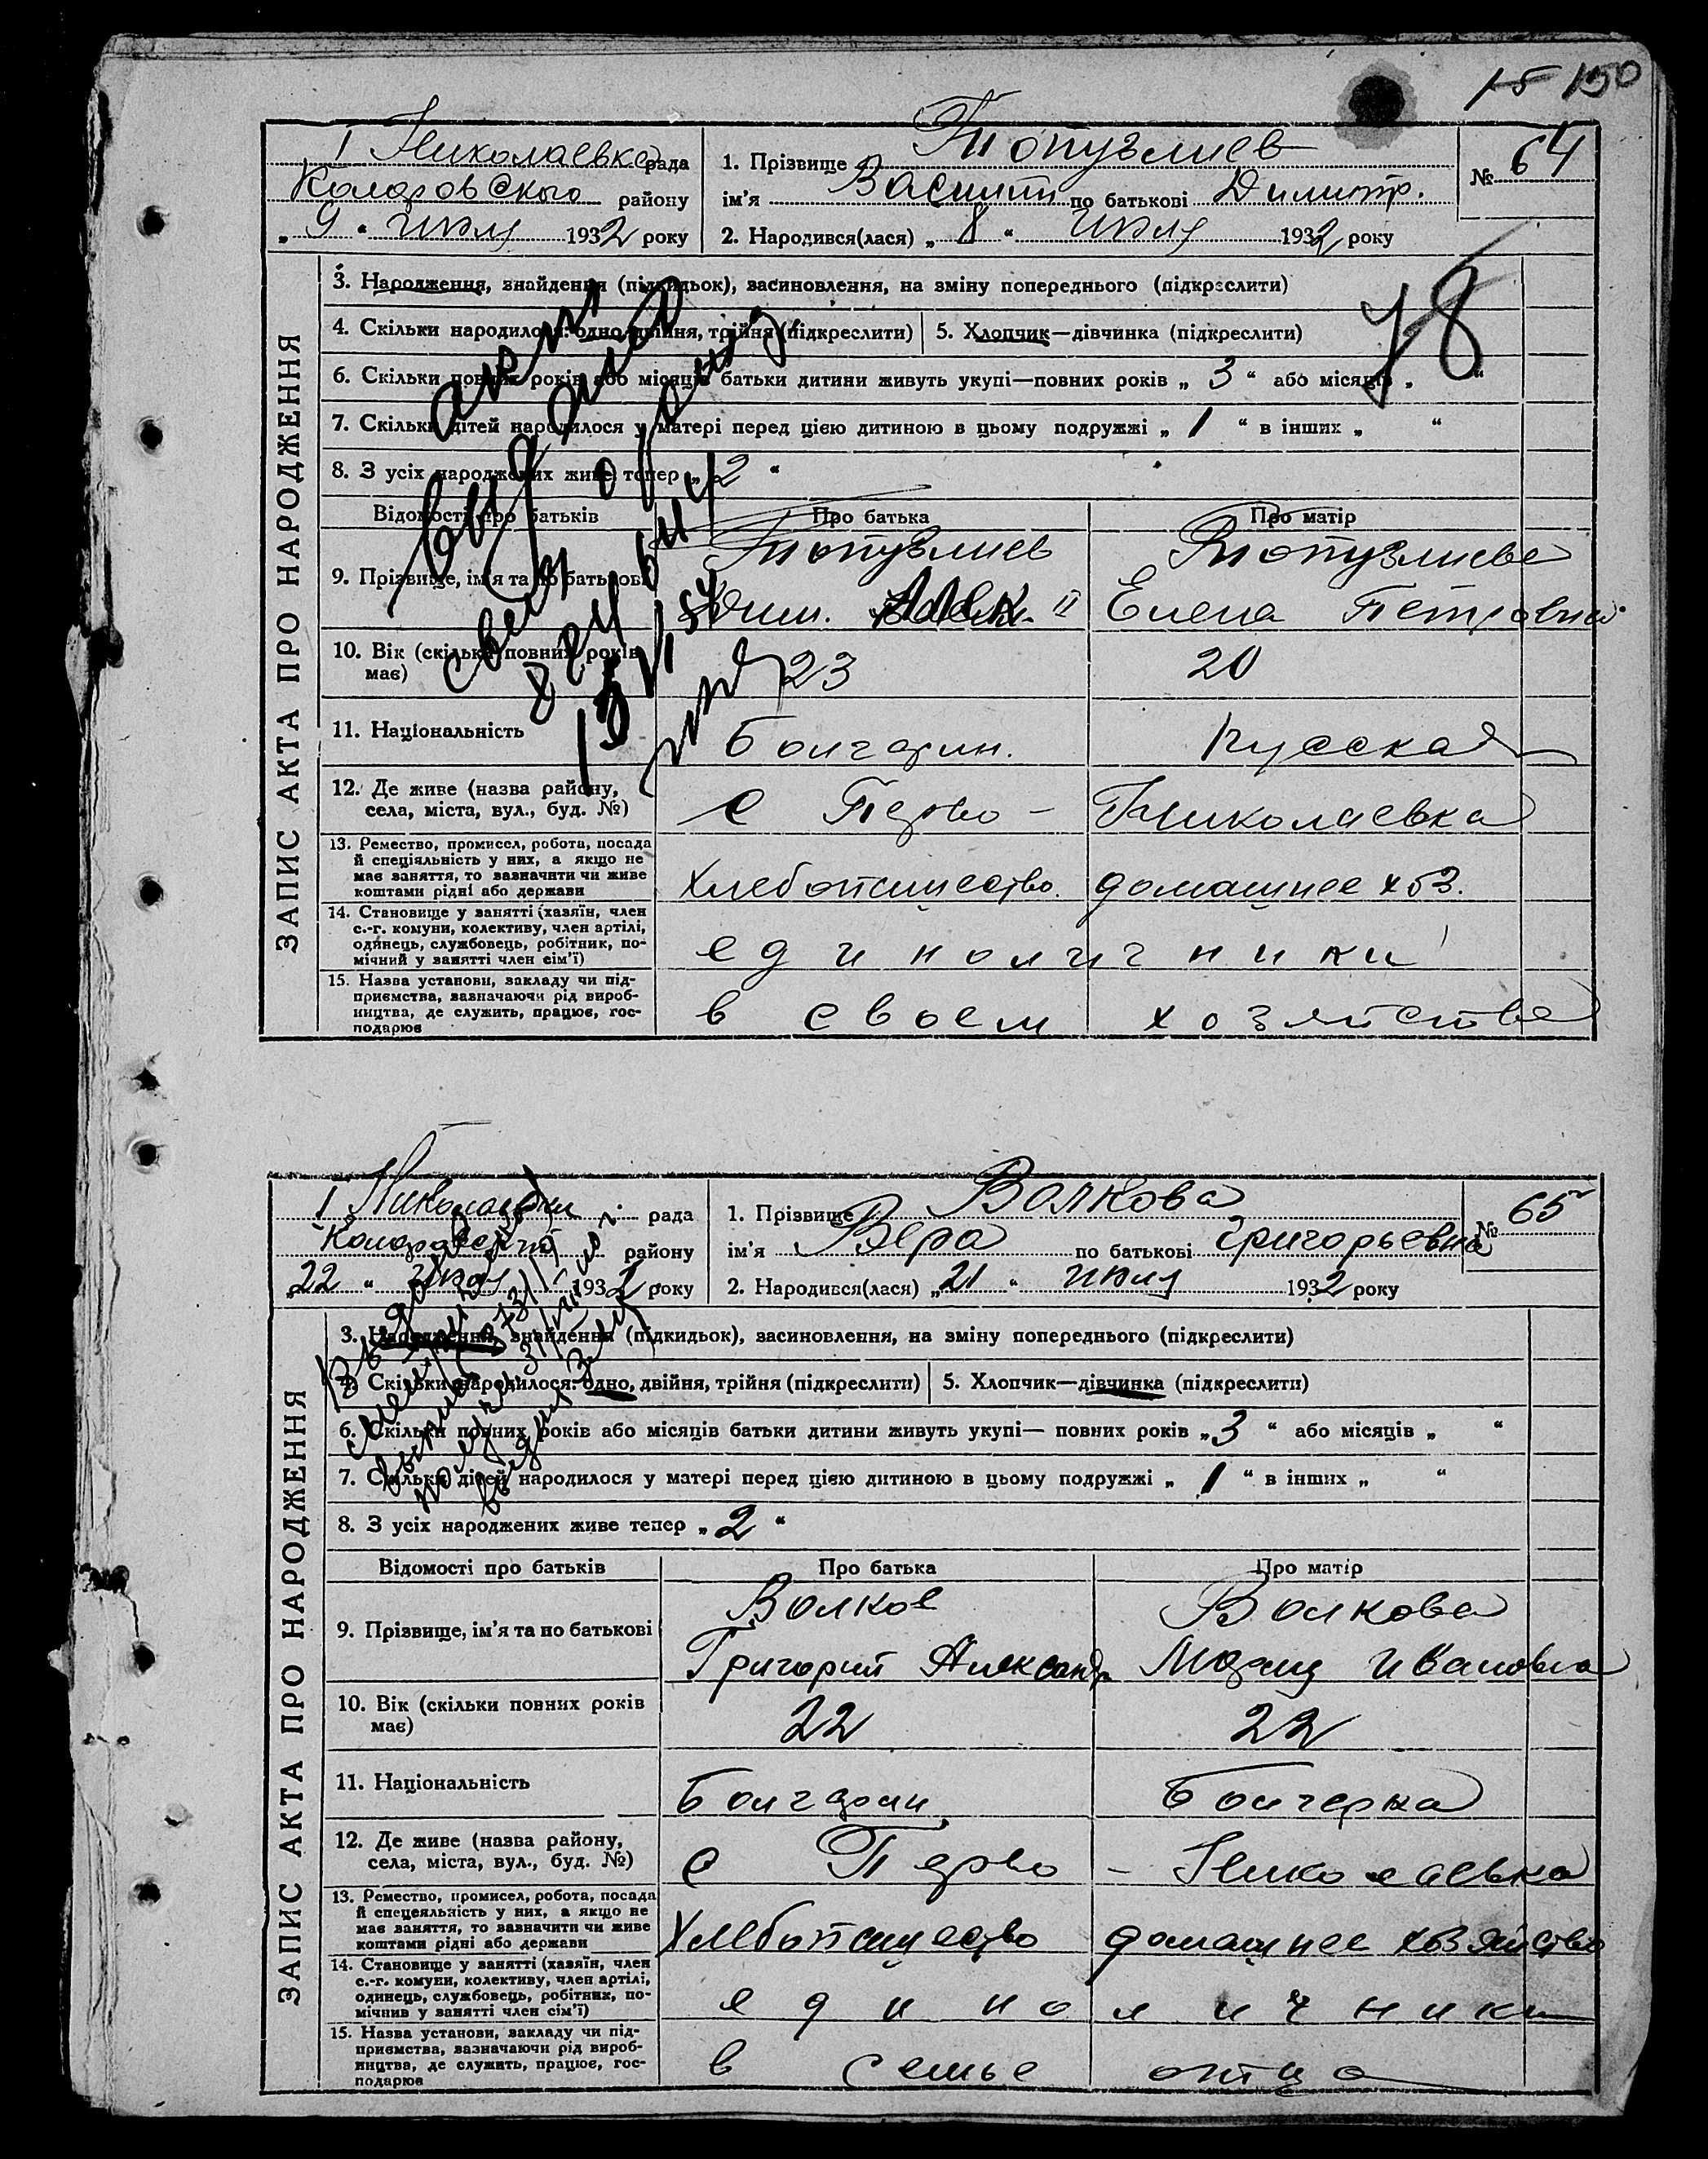 15 150
I Николаевка рада
Коларовского району
„ 9 “ Июля 1932 року
1. Прізвище Топузлиев
ім'я Василий по батькові Димитр.
2. Народився(лася) „ 8 “ Июля 1932 року
№ 64
78
ЗАПИС АКТА ПРО НАРОДЖЕННЯ
3. Народження, знайдення (підкидьок), засиновлення, на зміну попереднього (підкреслити)
4. Скільки народилося: одно, двійня, трійня (підкреслити) 5. Хлопчик—дівчинка (підкреслити)
6. Скільки повних років або місяців батьки дитини живуть укупі—повних років „ 3 “ або місяців „ “
7. Скільки дітей народилося у матері перед цією дитиною в цьому подружжі „ 1 “ в інших „ “
8. З усіх народжених живе тепер „ 2 “
Відомості про батьків Про батька Про матір
9. Прізвище, ім'я та по батькові
Топузлиев Топузлиева
Дим. Елена Петровна
10. Вік (скільки повних років має) 23 20
11. Національність Болгарин. Русская
12. Де живе (назва району, села, міста, вул., буд. №) с Перво - Николаевка
13. Ремество, промисел, робота, посада й спеціяльність у них, а якщо не має заняття, то зазначити чи живе коштами рідні або держави Хлебопашество. домашнее хоз.
14. Становище у занятті (хазяїн, член с.-г. комуни, колективу, член артілі, одинець, службовець, робітник, помічний у занятті член сім'ї) единоличники
15. Назва установи, закладу чи підприємства, зазначаючи рід виробництва, де служить, працює, господарює в своем хозяйстве
I Николаевка рада
Коларовского району
22 “ Июля 1932 року
1. Прізвище Волкова
ім'я Вера по батькові Григорьевна
2. Народився(лася) „ 21 “ Июля 1932 року
№ 65
ЗАПИС АКТА ПРО НАРОДЖЕННЯ
3. Народження, знайдення (підкидьок), засиновлення, на зміну попереднього (підкреслити)
4. Скільки народилося: одно, двійня, трійня (підкреслити) 5. Хлопчик—дівчинка (підкреслити)
6. Скільки повних років або місяців батьки дитини живуть укупі— повних років „ 3 “ або місяців „ “
7. Скільки дітей народилося у матері перед цією дитиною в цьому подружжі „ 1 “ в інших „ “
8. З усіх народжених живе тепер „ 2 “
Відомості про батьків Про батька Про матір
9. Прізвище, ім'я та по батькові
Волков Волкова
Григорий Александр Ивановна
10. Вік (скільки повних років має) 22 22
11. Національність Болгарин Болгарка
12. Де живе (назва району, села, міста, вул., буд. №) с Перво - Николаевка
13. Ремество, промисел, робота, посада й спецеяльність у них, а якщо не має заняття, то зазначити чи живе коштами рідні або держави Хлебопашество домашнее хозяйство
14. Становище у занятті (хазяїн, член с.-г. комуни, колективу, член артілі, одинець, службовець, робітник, помічнив у занятті член сім'ї) единоличники
15. Назва установи, закладу чи підприємства, вазначаючи рід виробництва, де служить, працює, господарює в семье отца